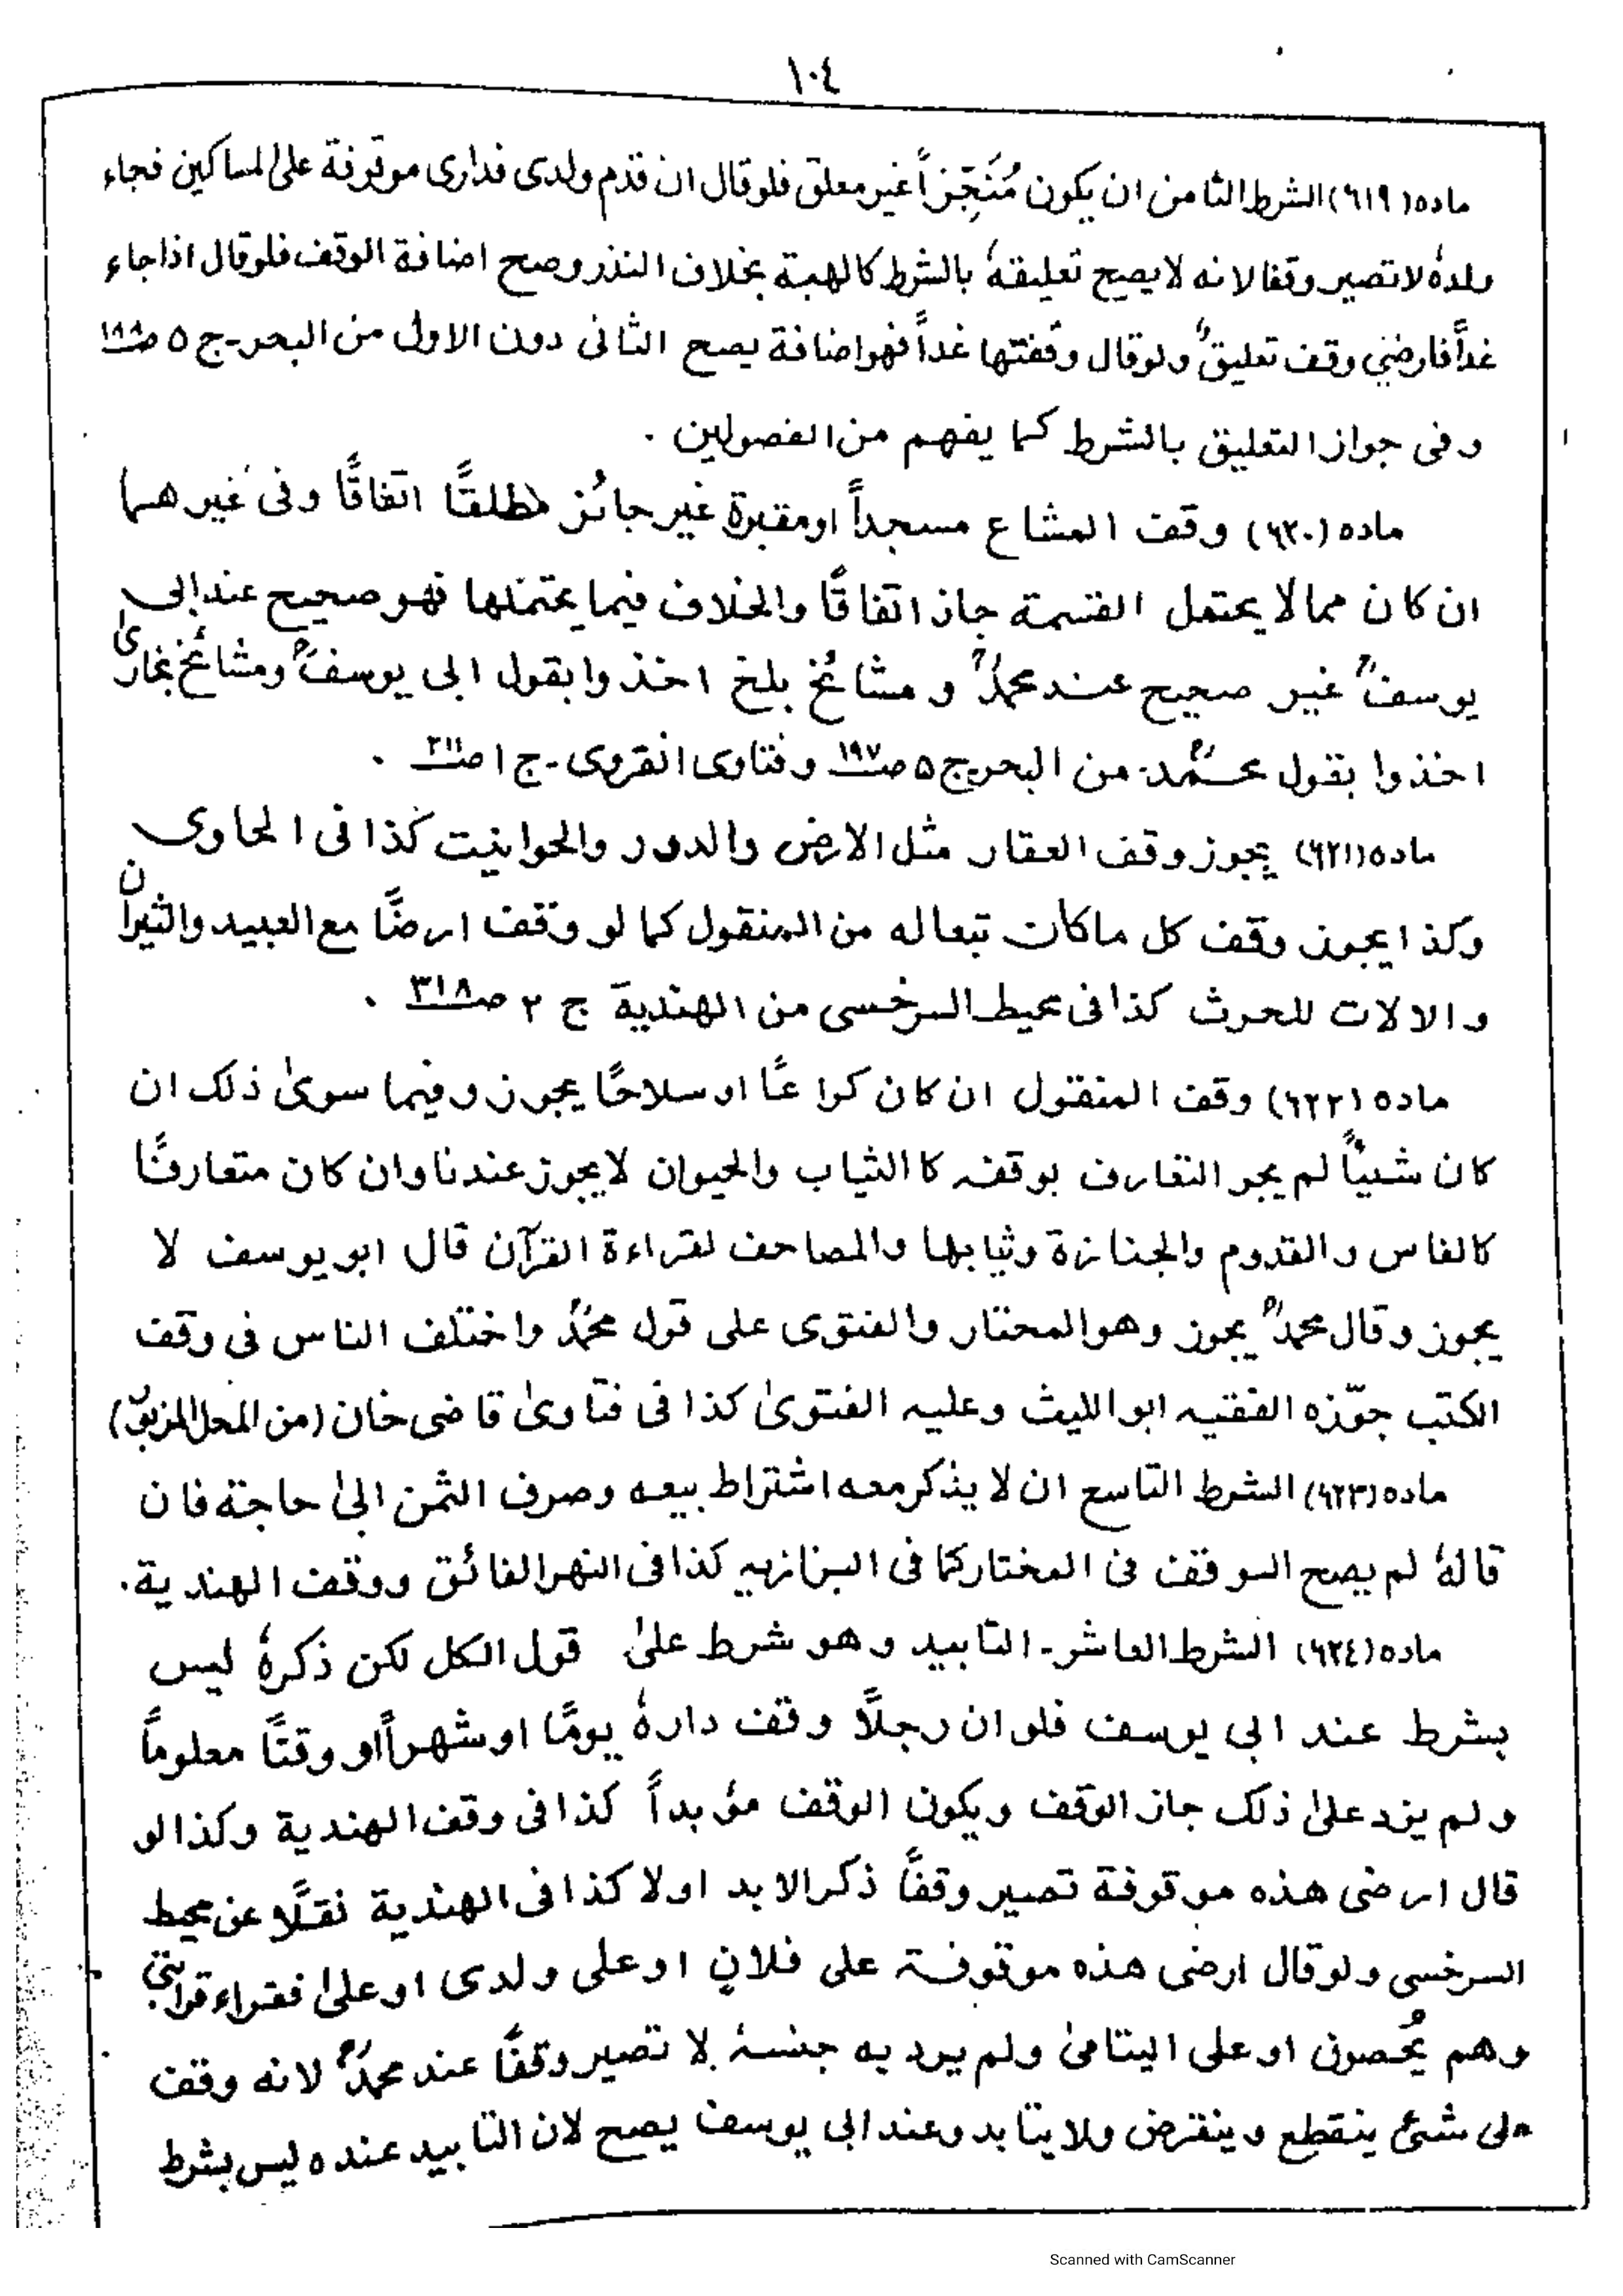 ١٠٤
ماده (٦١٩) الشرط الثامن ان يكون مُنَجَّزاً غير معلق فلو قال ان قدم ولدى فدارى موقوفة على المساكين فجاء
ولدهٗ لا تصير وقفا لانه لا يصح تعليقهٗ بالشرط كالهبة بخلاف النذر وصح اضافة الوقف فلو قال اذا جاء
غداً فارضي وقف تعليقٌ ولو قال وقفتها غداً فهو اضافة يصح الثانى دون الاول من البحر-ج ٥ صـ١٨٨
وفى جواز التعليق بالشرط كما يفهم من الفصولين .
ماده (٦٢٠) وقف المشاع مسجداً او مقبرة غير جائز مطلقًا اتفاقًا وفى غيرهما
ان كان مما لا يحتمل القسمة جاز اتفاقًا والخلاف فيما يحتملها فهو صحيح عند ابى
يوسفؒ غير صحيح عند محمدؒ و مشائخ بلخ اخذوا بقول ابى يوسفؒ ومشائخ بخارىٰ
اخذوا بقول محمدؒ من البحر ج ٥ صـ١٩٧ وفتاوى انقروى - ج ١ صـ٢١١ .
ماده (٦٢١) يجوز وقف العقار مثل الارض والدور والحوانيت كذا فى الحاوى
وكذا يجوز وقف كل ما كان تبعا له من المنقول كما لو وقف ارضًا مع العبيد والثيران
والالات للحرث كذا فى محيط السرخسى من الهندية ج ٢ صـ٣١٨ .
ماده (٦٢٢) وقف المنقول ان كان كراعًا او سلاحًا يجوز وفيما سوىٰ ذلك ان
كان شيئاً لم يجر التعارف بوقفه كا الثياب والحيوان لا يجوز عندنا وان كان متعارفًا
كالفاس والقدوم والجنازة وثيابها والمصاحف لقراءة القرآن قال ابو يوسف لا
يجوز وقال محمدؒ يجوز وهو المختار والفتوى على قول محمدؒ واختلف الناس فى وقف
الكتب جوّزه الفقيه ابو الليث وعليه الفتوىٰ كذا فى فتاوىٰ قاضى خان (من المحل المزبور)
ماده (٦٢٣) الشرط التاسع ان لا يذكر معه اشتراط بيعه وصرف الثمن الىٰ حاجة فان
قالهٗ لم يصح الوقف فى المختار كما فى البزازيه كذا فى النهر الفائق ووقف الهندية.
ماده (٦٢٤) الشرط العاشر - التابيد وهو شرط علىٰ قول الكل لكن ذكرهٗ ليس
بشرط عند ابى يوسف فلو ان رجلًا وقف دارهٗ يومًا او شهراً او وقتًا معلوماً
ولم يزد علىٰ ذلك جاز الوقف ويكون الوقف مؤبداً كذا فى وقف الهندية وكذا لو
قال ارضى هذه موقوفة تصير وقفًا ذكر الابد اولا كذا فى الهندية نقلًا عن محيط
السرخسى ولو قال ارضى هذه موقوفة على فلان او على ولدى او علىٰ فقراء قرابتى
وهم يُحصون او على اليتامىٰ ولم يرد به جنسهٗ لا تصير وقفًا عند محمدؒ لانه وقف
على شئ ينقطع وينقرض ولا يتابد وعند ابى يوسف يصح لان التابيد عنده ليس بشرط
Scanned with CamScanner